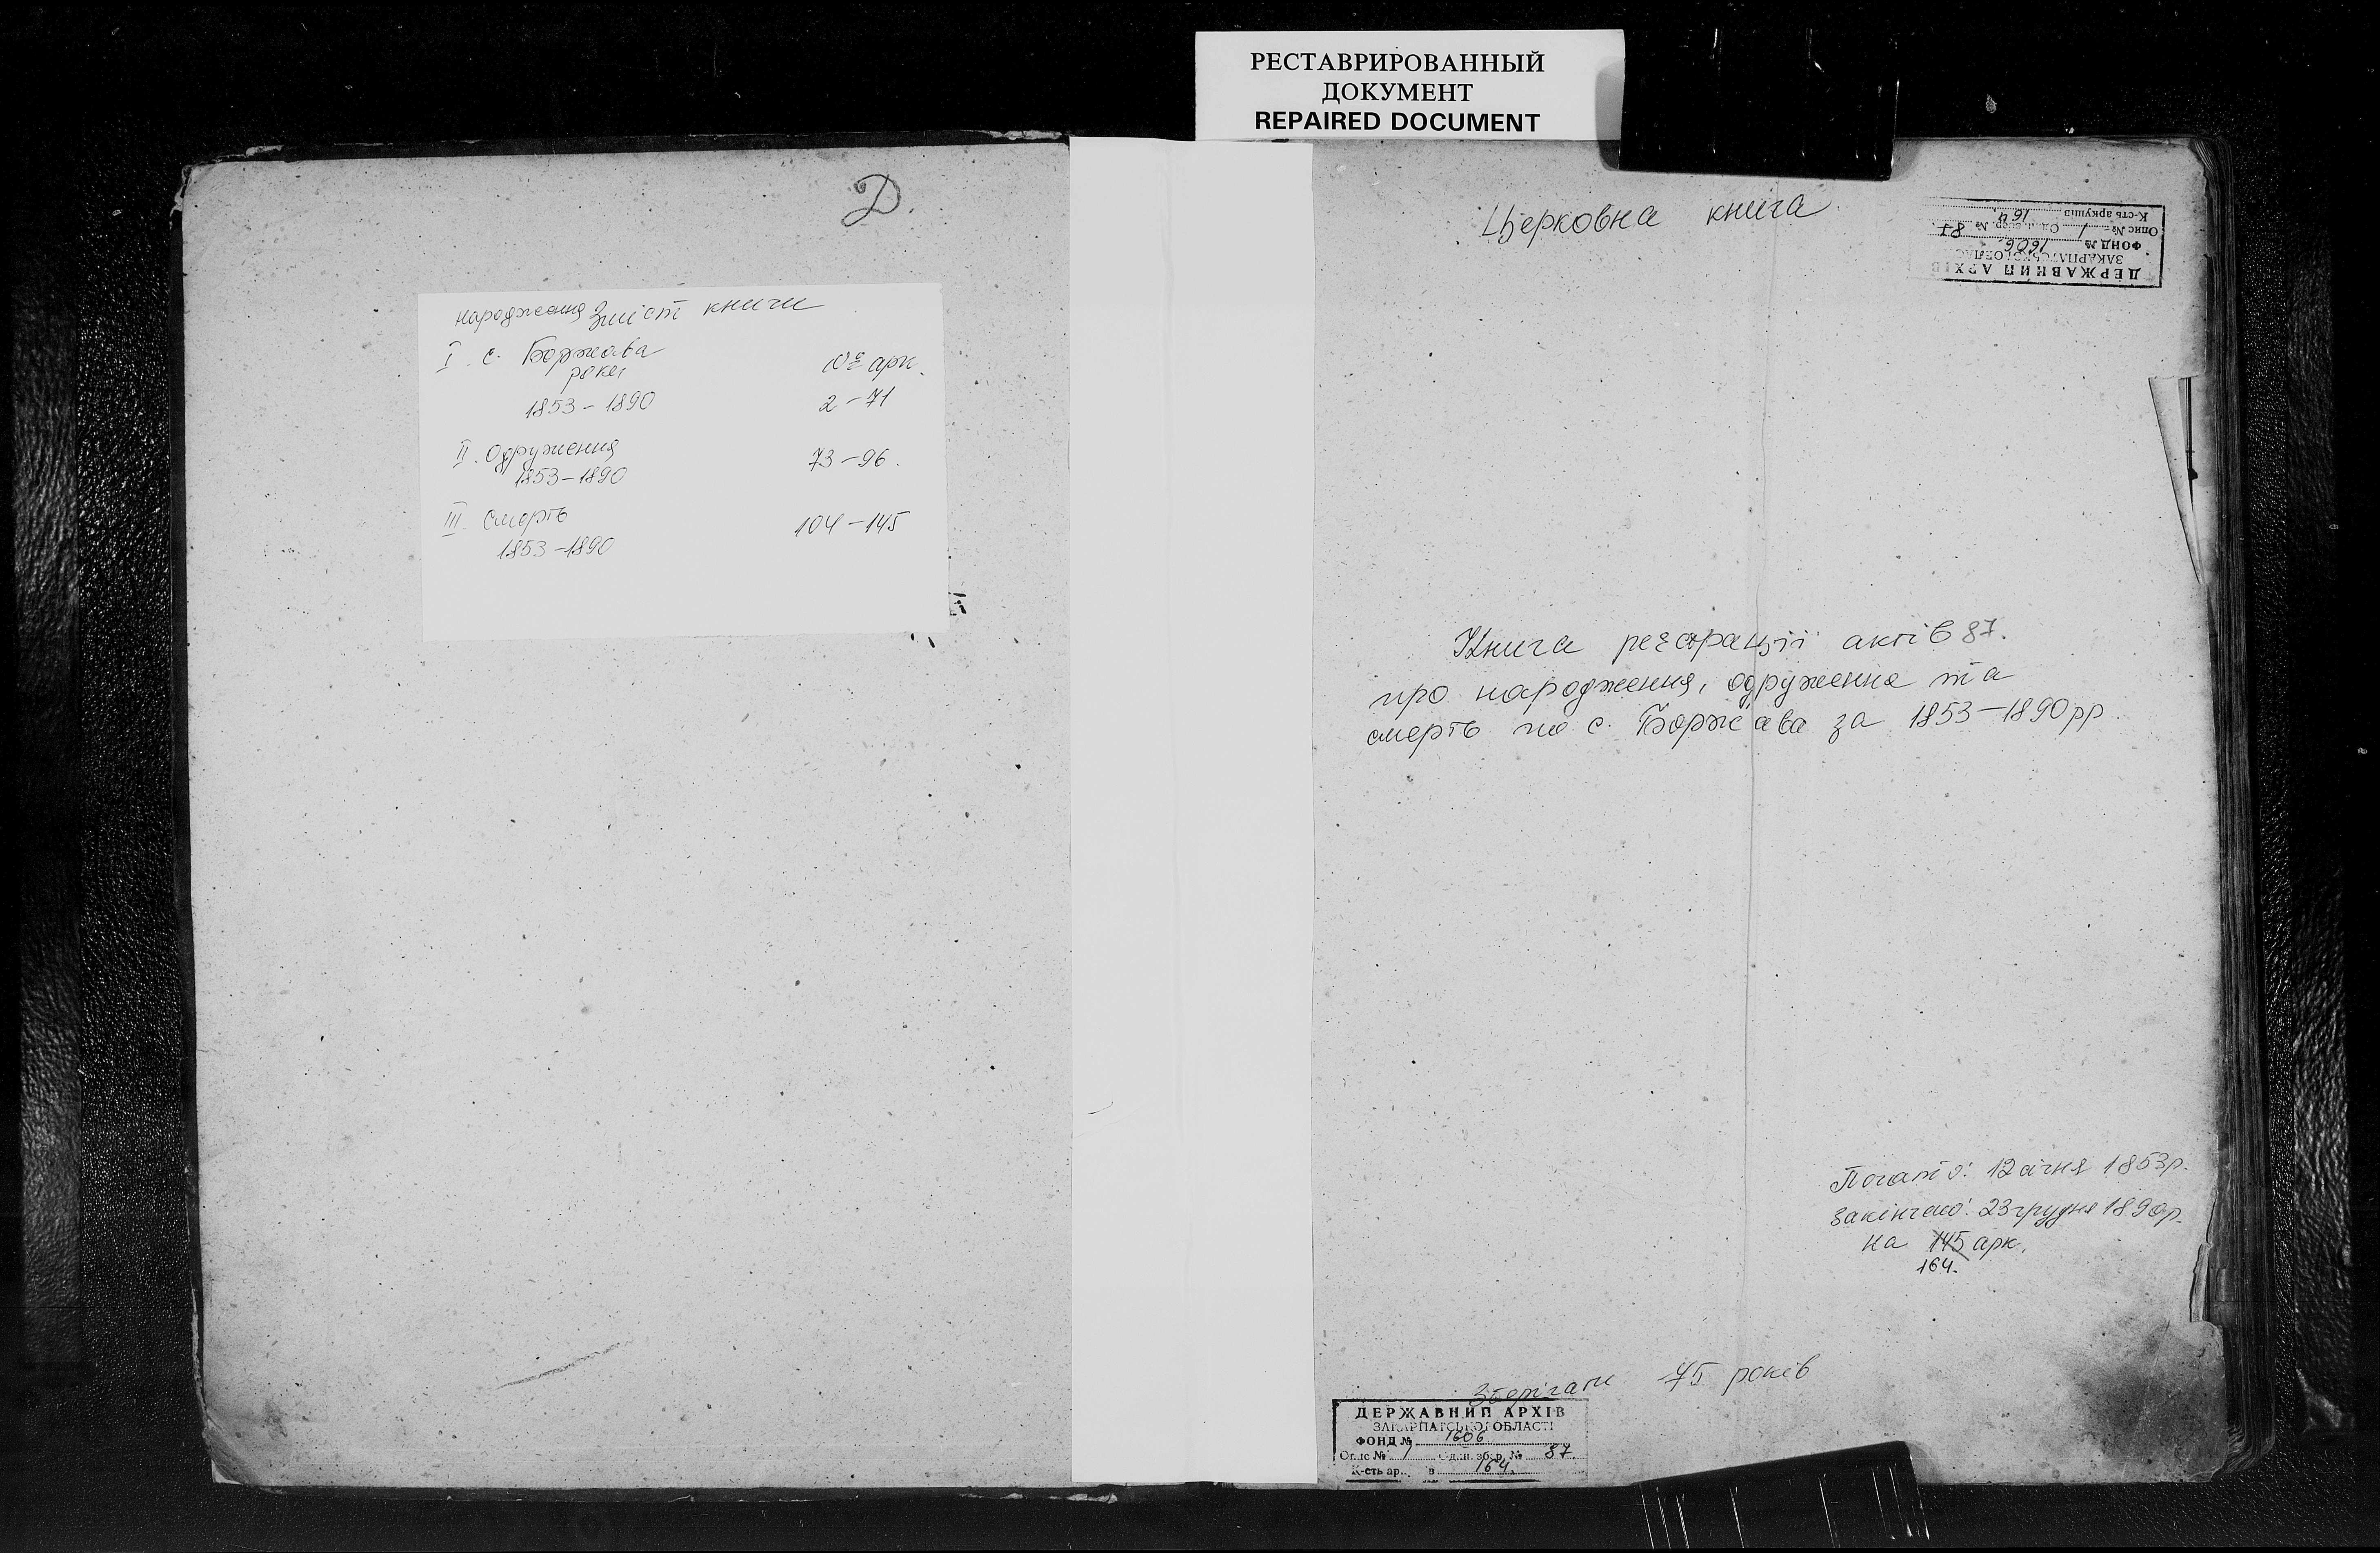 РЕСТАВРИРОВАННЫЙ
ДОКУМЕНТ
REPAIRED DOCUMENT
Д.
народження Зміст книги
I. с. Боржава № арк.
роки
1853-1890 2-71
II. Одруження 73-96.
1853-1890
III. Смерть 104-145
1853-1890
Церковна книга
ДЕРЖАВНИЙ АРХІВ
ЗАКАРПАТСЬКОЇ ОБЛАС
ФОНД № 1606
Опис № 1 Од. збер. № 87.
К-сть аркушів 164.
Книга реєстрації актів 87.
про народження, одруження та
смерть по с. Боржава за 1853-1890 рр.
Почато: 12 січня 1853р.
Закінчено: 23 грудня 1890р.
на 145 арк.
164.
Зберігати 75 років
ДЕРЖАВНИЙ АРХІВ
ЗАКАРПАТСЬКОЇ ОБЛАСТІ
ФОНД № 1606
Опис № 1 Один. збер. № 87.
К-сть ар. в 164.